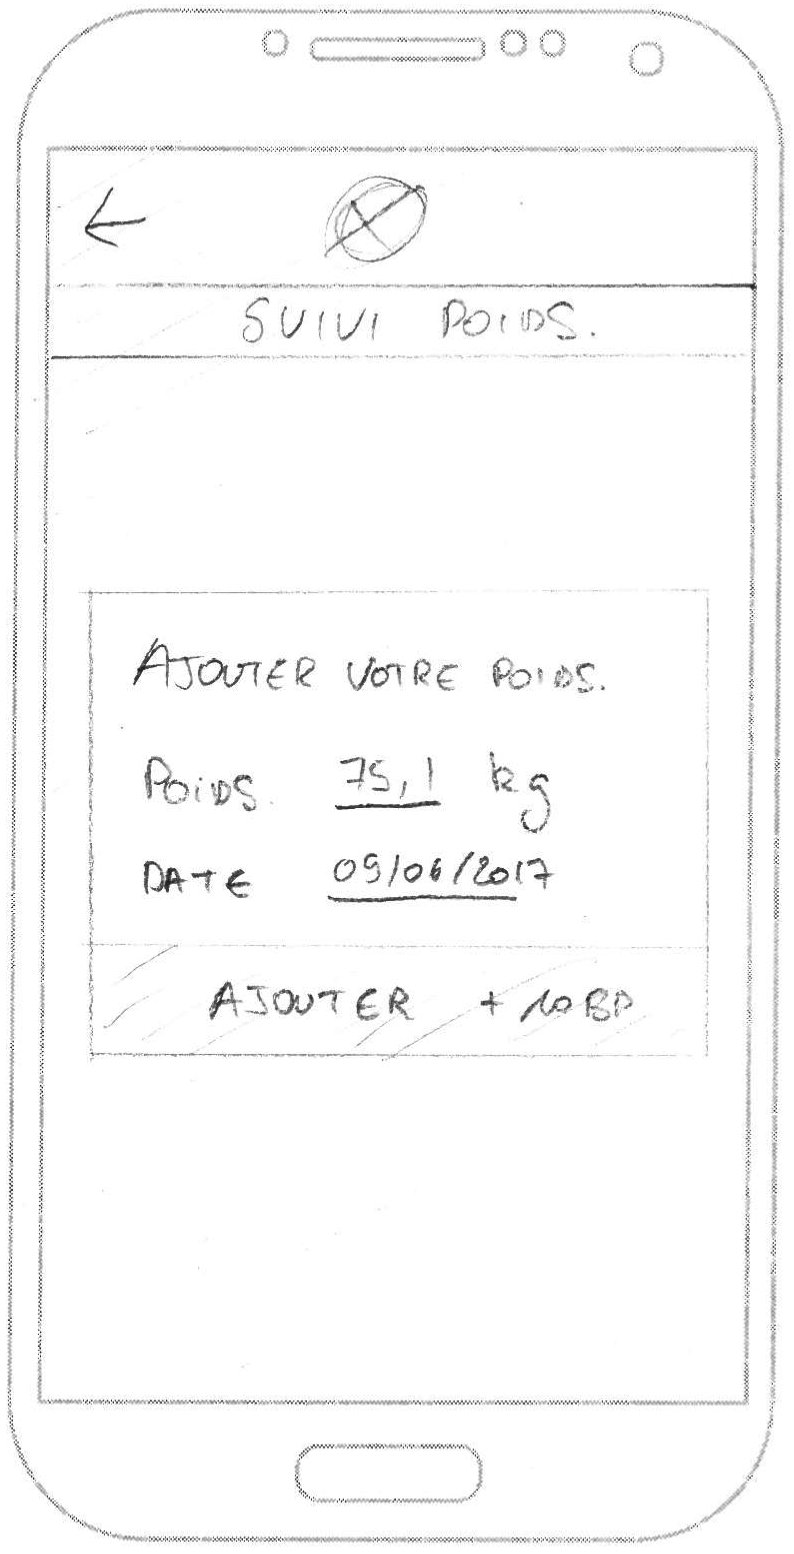 SUIVI POIDS.
AJOUTER VOTRE POIDS.
POIDS. 75,1 kg
DATE 09/06/2017
AJOUTER + 10 BP